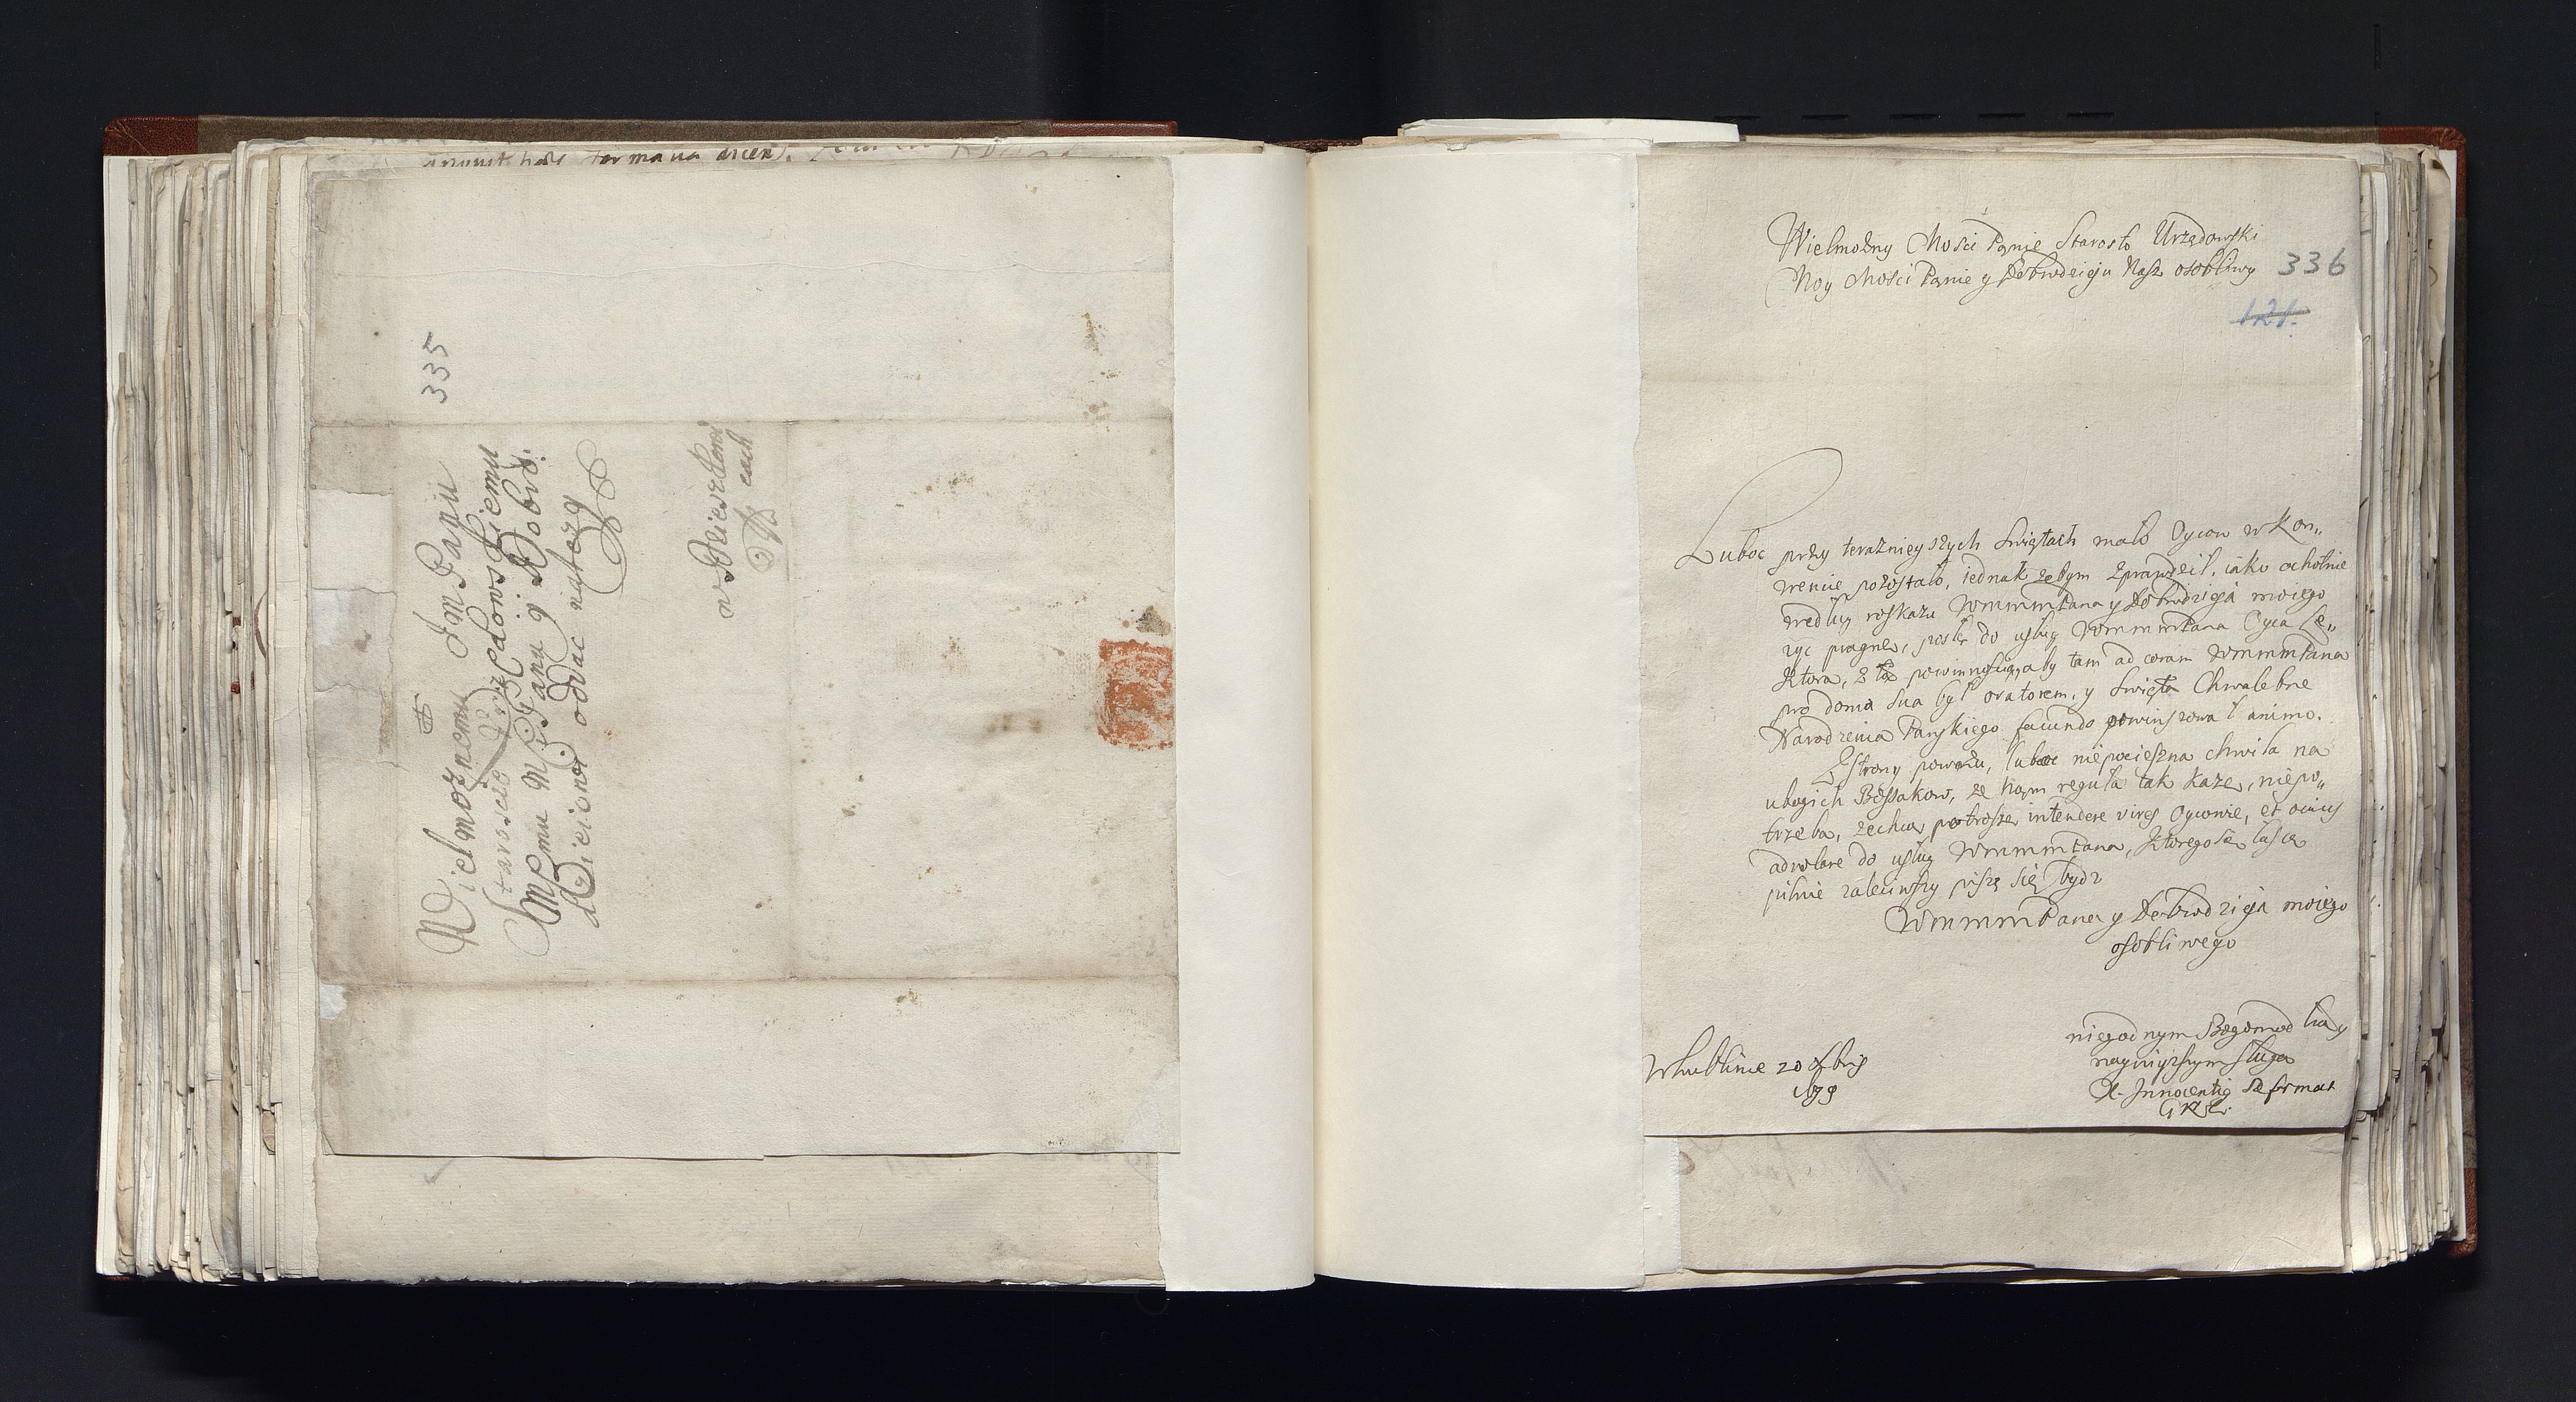 335
Wielmoznemu Im Panu
Staroscie Urzędowskiemu
Memu M Panu y Dobrd.
oddac nalezy
w Dzierzkowi
cach
Wielmożny Mości Panie Starosto Urzędowski
Moy Mości Panie y Dobrodzieju Nasz osobliwy
336
121.
Luboc przy teraznieyszych Swiętach mało Oycow w Kon„
wencie pozostało, iednak zebym sprawdził, iako ochotnie
według roskazu WmmmPana y Dobrodzieja moiego
zyc pragnę, poslę do usług WmmmPana Oyca Le„
ktora, z tą powinnoscią, aby tam ad coram WmmmPana
pro domo sua był oratorem, y Swięta Chwalebne
Narodzenia Pańskiego facundo powinszował animo.
Z Strony powozu, luboc niepocieszna chwila na
ubogich Bossakow, ze nam reguła tak kaze, niepo„
trzeba, zechcą potrosze intendere vires Oycowie, et ocius
advolare do usług WmmmPana, ktorego się łasce
pilnie zaleciwszy piszę się bydz
WmmmPana y Dobrodzieja moiego
osobliwego
niegodnym Bogomodlcą y
nayniższym sługą
X. Innocenty Reformat
W Lublinie 20 Xbris
1679